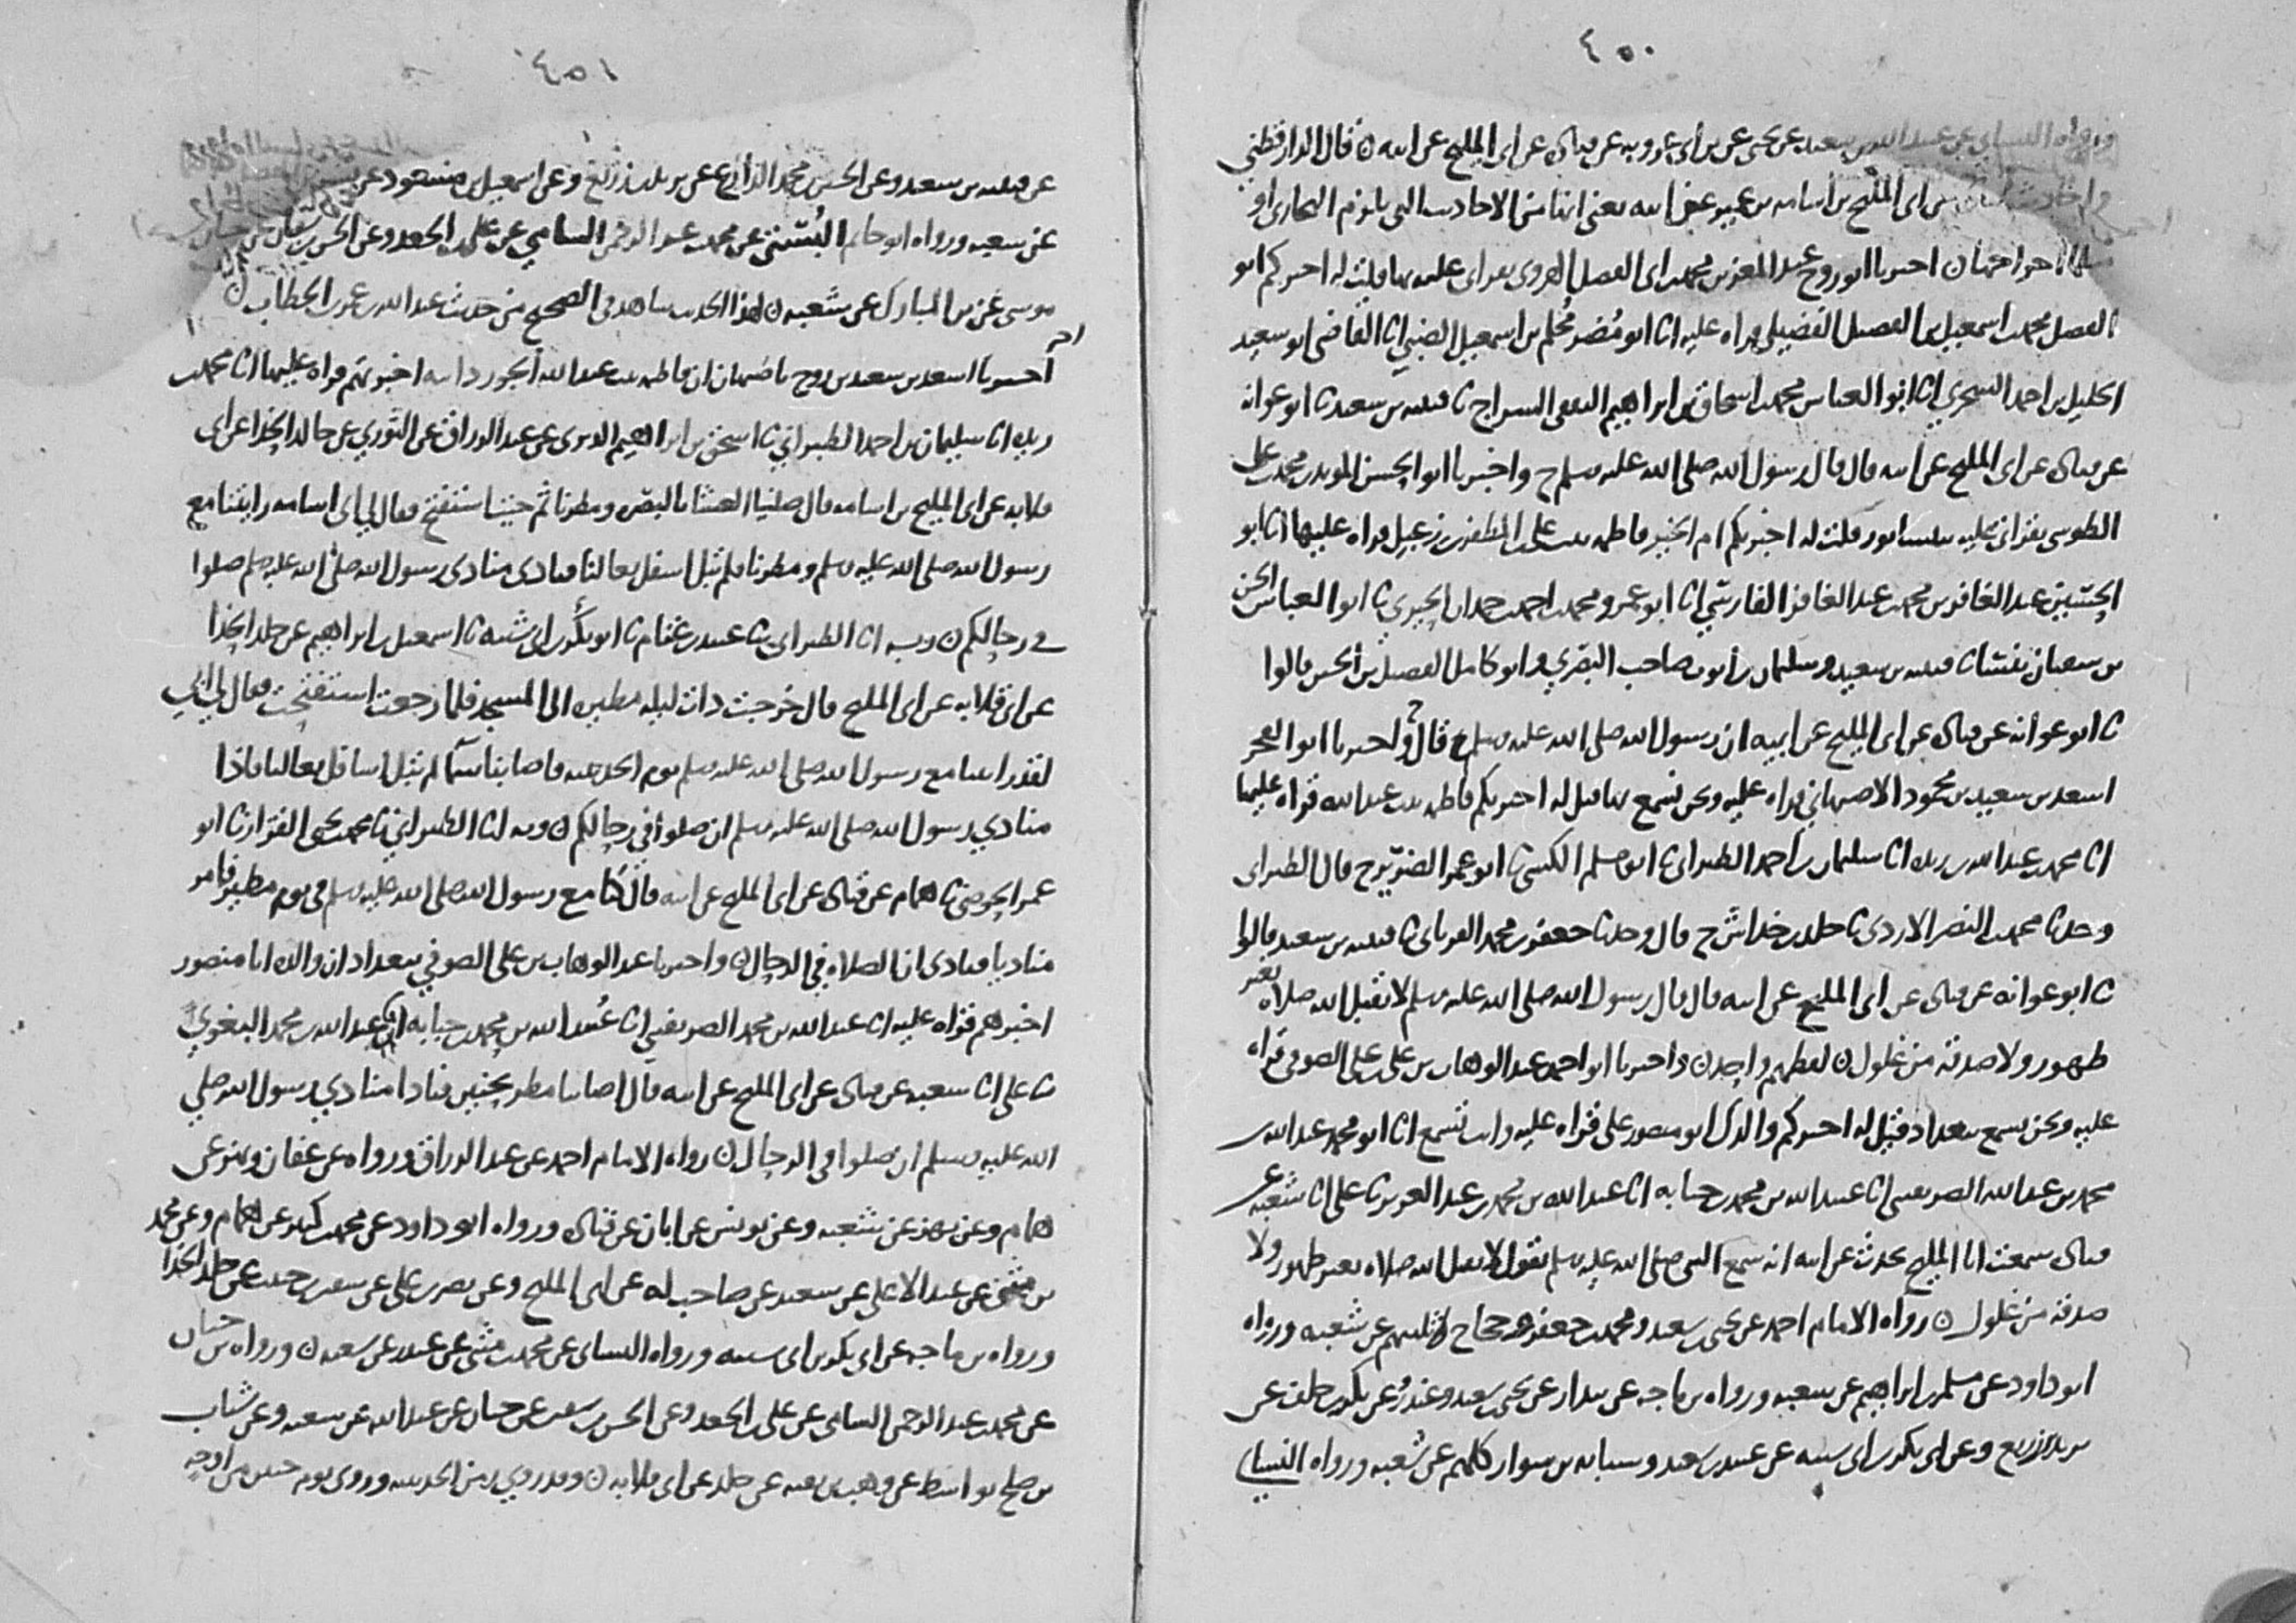 ٤٥٠
ورواه النسائي عن عبيد الله بن سعيد عن يحيى عن بن أبي عروبه عن قتادة عن أبي المليح عن أبيه ن قال الدارقطني
أبي المليح بن أسامه بن عمير عن أبيه يعني انها من الاحاديث التي يلزم البخاري او
اخراجها ن اخبرنا ابو روح عبد المعز بن محمد بن أبي الفضل الهروي بقراتي عليه بها قلت له اخبركم ابو
الفضل محمد بن اسمعيل بن الفضيل الفضيلي قراه عليه انا ابو مضر محلم بن اسمعيل الضبي انا القاضي ابو سعيد
الخليل بن احمد السجزي انا ابو العباس محمد بن اسحاق بن ابراهيم الثقفي السراج ثنا قتيبه بن سعيد ثنا ابو عوانه
عن قتادة عن أبي المليح عن أبيه قال قال رسول الله صلى الله عليه وسلم ح واخبرنا ابو الحسن المويد بن محمد بن علي
الطوسي بقراتي عليه بنيسابور قلت له اخبرتكم ام الخير فاطمه بنت علي بن المظفر بن زعبل قراه عليها انا ابو
الحسين عبد الغافر بن محمد بن عبد الغافر الفارسي انا ابو عمرو محمد بن احمد بن حمدان الحيري ثنا ابو العباس الحسن
بن سفيان بفسا ثنا قتيبه بن سعيد وسليمان بن أيوب صاحب البصري وابو كامل الفضيل بن الحسين قالوا
ثنا ابو عوانه عن قتادة عن أبي المليح عن ابيه ان رسول الله صلى الله عليه وسلم ح قال واخبرنا ابو الفخر
اسعد بن سعيد بن محمود الاصبهاني قراه عليه ونحن نسمع بها قيل له اخبرتكم فاطمه بنت عبد الله قراه عليها
انا محمد بن عبد الله بن ريذه انا سليمان بن أحمد الطبراني ثنا ابو مسلم الكشي ثنا ابو عمر الضرير ح قال الطبراني
وحدثنا محمد بن النضر الازدي ثنا خلد بن خداش ح قال وحدثنا جعفر بن محمد الفريابي ثنا قتيبه بن سعيد قالوا
ثنا ابو عوانه عن قتادة عن أبي المليح عن أبيه قال قال رسول الله صلى الله عليه وسلم لا يقبل الله صلاه بغير
طهور ولا صدقه من غلول ن لفظهم واحد ن واخبرنا ابو احمد عبد الوهاب بن علي بن علي الصوفي قراه
عليه ونحن نسمع ببغداد قيل له اخبركم والدك ابو منصور علي قراه عليه وانت تسمع انا ابو محمد عبد الله بن
محمد بن عبد الله الصريفيني انا عبيد الله بن محمد بن حبابه انا عبد الله بن محمد بن عبد العزيز ثنا علي انا شعبه عن
قتادة سمعت ابا المليح يحدث عن ابيه انه سمع النبي صلى الله عليه وسلم يقول لا يقبل الله صلاه بغير طهور ولا
صدقه من غلول ن رواه الامام احمد عن يحيى بن سعيد ومحمد بن جعفر وحجاج ثلاثتهم عن شعبه ورواه
ابو داود عن مسلم بن ابراهيم عن شعبه ورواه بن ماجه عن بندار عن يحيى بن سعيد وغندر وعن بكر بن خلف عن
يزيد بن زريع وعن أبي بكر بن أبي شيبه عن عبيد بن سعيد وشبابه بن سوار كلهم عن شعبه ورواه النسائي
٤٥١
عن قتيبه بن سعيد وعن الحسين بن محمد الذارع عن يزيد بن زريع وعن اسمعيل بن مسعود عن بشر
عن شعبه ورواه ابو حاتم البُستي عن محمد بن عبد الرحمن السامي عن علي بن الجعد وعن الحسن بن سفيان عن حبان
موسى عن بن المبارك عن شعبه ن لهذا الحديث شاهد في الصحيح من حديث عبد الله بن عمر بن الخطاب ن
اخر
اخبرنا اسعد بن سعيد بن روح باصبهان ان فاطمه بنت عبد الله الجوزدانيه اخبرتهم قراه عليها انا محمد بن
ريذه انا سليمان بن احمد الطبراني ثنا اسحق بن ابراهيم الدبري عن عبد الرزاق عن الثوري عن خالد الحذا عن أبي
قلابه عن أبي المليح بن اسامه قال صلينا العشا بالبصره ومطرنا ثم جئت استفتح فقال لي ابي اسامه رايتنا مع
رسول الله صلى الله عليه وسلم ومطرنا فلم تبل اسفل نعالنا فنادى منادي رسول الله صلى الله عليه وسلم صلوا
في رحالكم ن وبه انا الطبراني ثنا عبيد بن غنام ثنا ابو بكر بن أبي شيبه ثنا اسمعيل بن ابراهيم عن خلد الحذا
عن ابي قلابه عن أبي المليح قال خرجت ذات ليله مطيره الى المسجد فلما رجعت استفتحت فقال لي أبي
لقد رايتنا مع رسول الله صلى الله عليه وسلم يوم الحديبيه فاصابتنا سما لم تبل اسافل نعالنا فاذا
منادي رسول الله صلى الله عليه وسلم ان صلوا في رحالكم ن وبه انا الطبراني ثنا محمد بن يحيى القزاز ثنا ابو
عمر الحوضي ثنا همام عن قتادة عن أبي المليح عن ابيه قال كنا مع رسول الله صلى الله عليه وسلم في يوم مطير فامر
مناديا فنادى ان الصلاه في الرحال ن واخبرنا عبد الوهاب بن علي الصوفي ببغداد ان والده ابا منصور
اخبرهم قراه عليه انا عبد الله بن محمد الصريفيني انا عُبيد الله بن محمد بن حبابه انا عبد الله بن محمد البغوي
ثنا علي انا شعبه عن قتادة عن أبي المليح عن ابيه قال اصابنا مطر بحنين فنادا منادي رسول الله صلى
الله عليه وسلم ان صلوا في الرحال ن رواه الامام احمد عن عبد الرزاق ورواه عن عفان وبهز عن
همام وعن بهز عن شعبه وعن يونس عن ابان عن قتادة ورواه ابو داود عن محمد بن كثير عن همام وعن محمد
بن مثنى عن عبد الاعلى عن سعيد عن صاحب له عن ابي المليح وعن نصر بن علي عن سفين بن حبيب عن خلد الحذا
ورواه بن ماجه عن ابي بكر بن ابي شيبه ورواه النسائي عن محمد بن مثنى عن غندر عن شعبه ن ورواه بن حبان
عن محمد بن عبد الرحمن السامي عن علي بن الجعد وعن الحسن بن سفين عن حبان عن عبد الله عن شعبه وعن شباب
بن صلح بواسط عن وهب بن بقيه عن خلد عن ابي قلابه ن وقد روي زمن الحديبيه وروي يوم حنين من اوجه